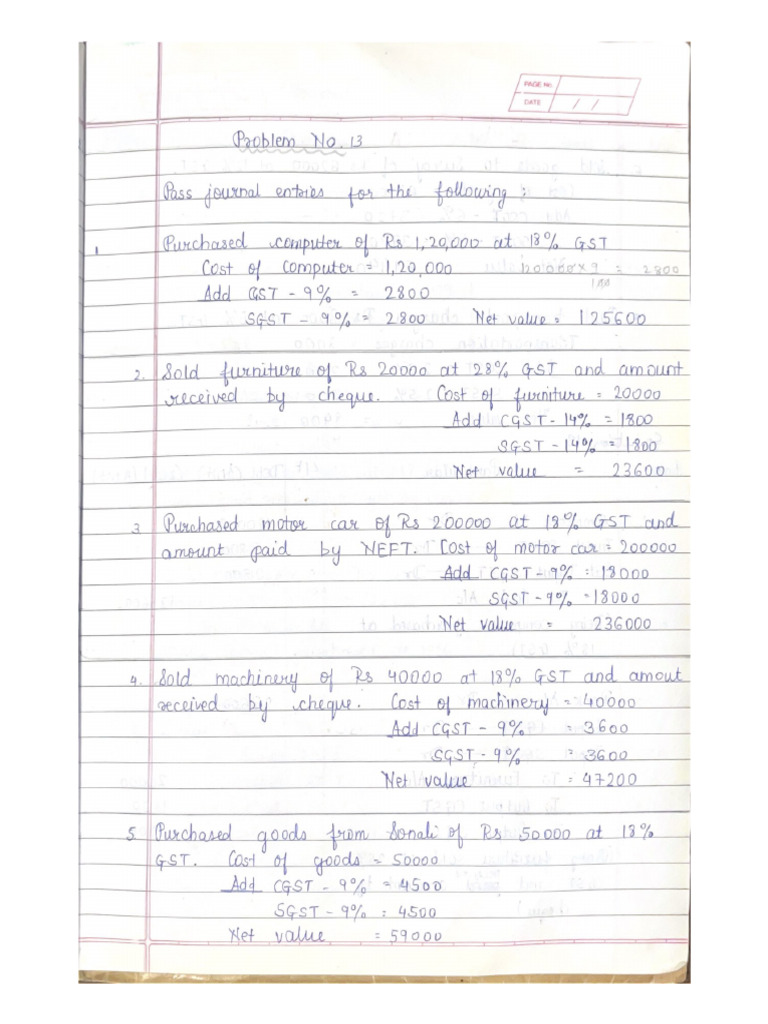 PAGE No.
DATE / /
Problem No. 13
Pass journal entries for the following :
1 Purchased computer of Rs 1,20,000 at 18% GST
Cost of computer = 1,20,000 120000×9 = 2800
100
Add GST - 9% = 2800
SGST - 9% = 2800 Net value = 125600
2. Sold furniture of Rs 20000 at 28% GST and amount
received by cheque. Cost of furniture = 20000
Add CGST - 14% = 1800
SGST - 14% = 1800
Net value = 23600
3 Purchased motor car of Rs 200000 at 18% GST and
amount paid by NEFT. Cost of motor car = 200000
Add CGST - 9% = 18000
SGST - 9% = 18000
Net value = 236000
4. Sold machinery of Rs 40000 at 18% GST and amout
received by cheque. Cost of machinery = 40000
Add CGST - 9% = 3600
SGST - 9% = 3600
Net value = 47200
5. Purchased goods from Sonali of Rs 50000 at 18%
GST. Cost of goods = 50000
Add CGST - 9% = 4500
SGST - 9% = 4500
Net value = 59000